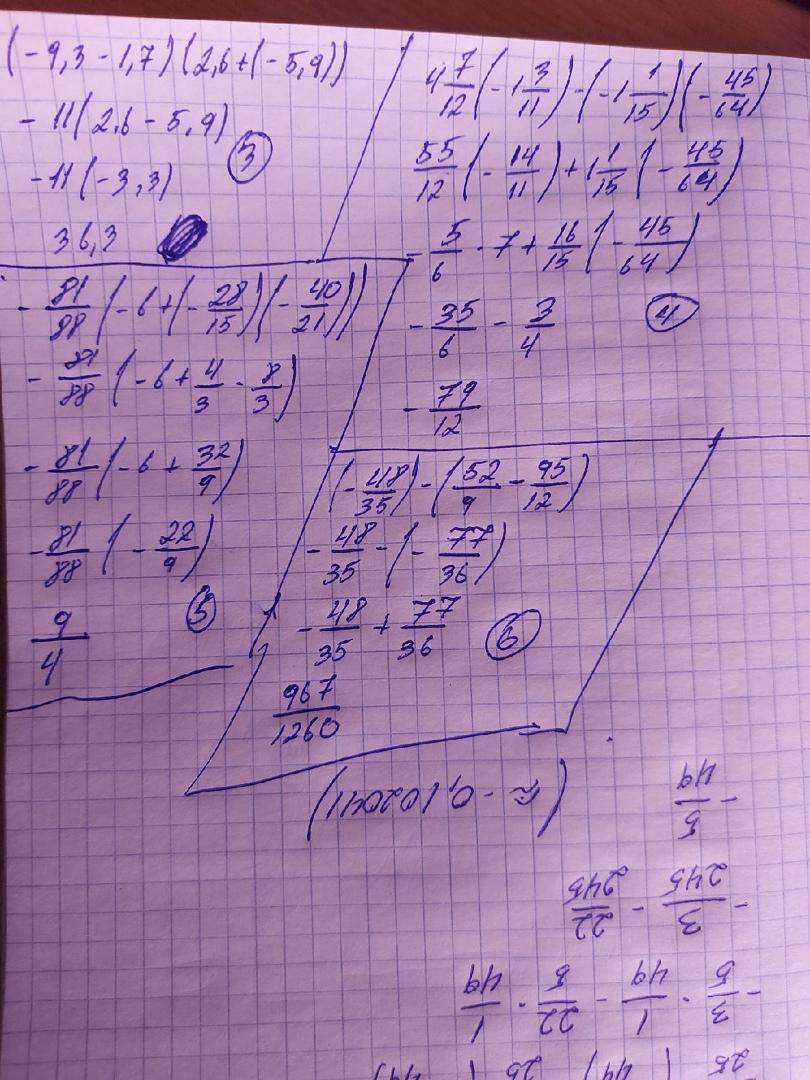 (-9,3-1,7)(2,6+(-5,9))
-11(2,6-5,9)
-11(-3,3)
3
36,3
4 7/12 (-1 3/11) - (-1 1/15)(-45/64)
55/12 (-14/11) + 1 1/15 (-45/64)
-5/6 · 7 + 16/15 (-45/64)
-35/6 - 3/4
4
-79/12
-81/88 (-6+(-28/15)(-40/21))
-81/88 (-6+4/3 · 8/3)
-81/88 (-6+32/9)
-81/88 (-22/9)
5
9/4
(-48/35) - (52/9 - 95/12)
-48/35 - (-77/36)
-48/35 + 77/36
6
967/1260
-3/5 · 1/49 - 22/5 · 1/49
-3/245 - 22/245
-5/49
(≈ -0,102041)